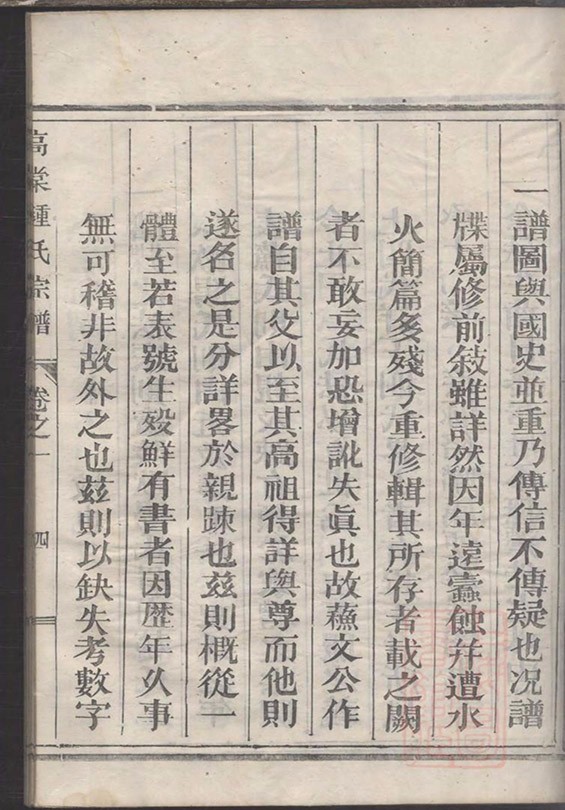 一譜圖與國史並重乃傳信不傳疑也况譜
牒屬修前敍雖詳然因年遠蠹蝕幷遭水
火簡篇多殘今重修輯其所存者載之闕
者不敢妄加恐增訛失眞也故蘓文公作
譜自其父以至其高祖得詳與尊而他則
遂名之是分詳畧於親踈也兹則概從一
體至若表號生殁鮮有書者因歷年久事
無可稽非故外之也兹則以缺失考數字
高棠鍾氏宗譜 卷之一 四